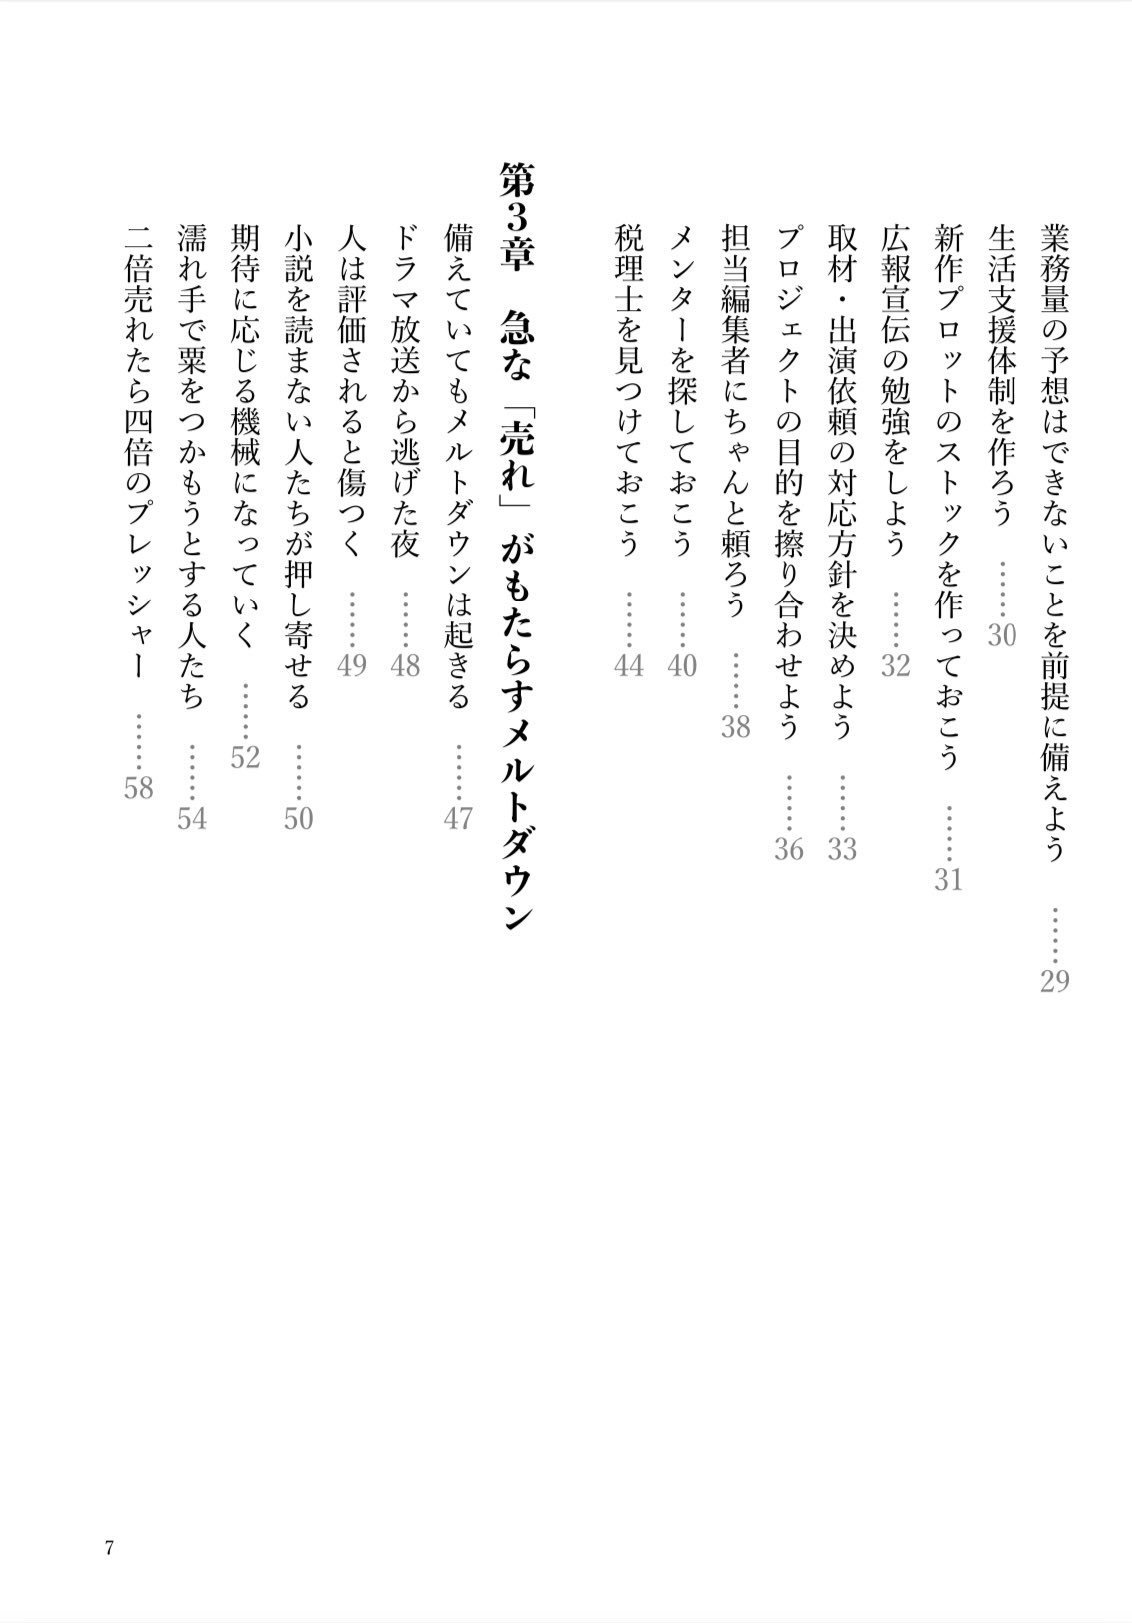 業務量の予想はできないことを前提に備えよう ……29
生活支援体制を作ろう ……30
新作プロットのストックを作っておこう ……31
広報宣伝の勉強をしよう ……32
取材・出演依頼の対応方針を決めよう ……33
プロジェクトの目的を擦り合わせよう ……36
担当編集者にちゃんと頼ろう ……38
メンターを探しておこう ……40
税理士を見つけておこう ……44
第3章 急な「売れ」がもたらすメルトダウン
備えていてもメルトダウンは起きる ……47
ドラマ放送から逃げた夜 ……48
人は評価されると傷つく ……49
小説を読まない人たちが押し寄せる ……50
期待に応じる機械になっていく ……52
濡れ手で粟をつかもうとする人たち ……54
二倍売れたら四倍のプレッシャー ……58
7